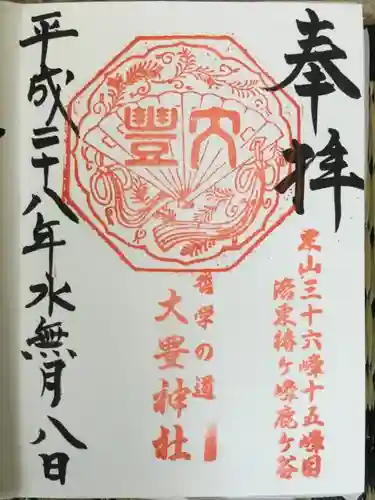 奉拝
東山三十六峰十五峰目
洛東椿ケ峰鹿ケ谷
大豊
哲学の道
大豊神社
平成二十八年水無月八日